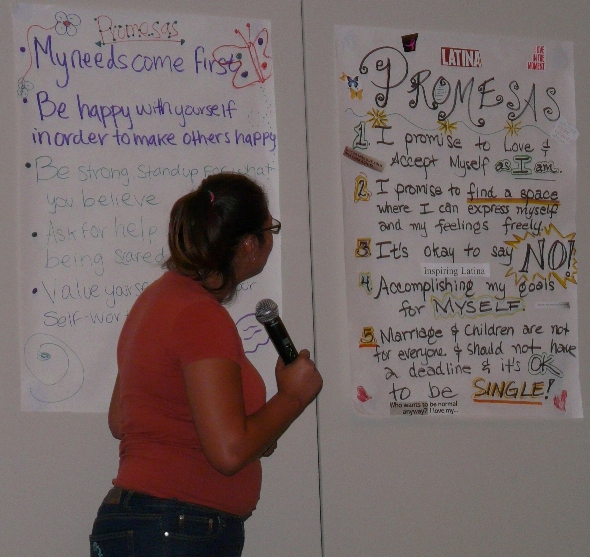 Promesas
• My needs come first
• Be happy with yourself
in order to make others happy
• Be strong stand up for what
you believe
• Ask for help
being scared
• Value yourse
Self-wor
LATINA
LIVE
IN THE
MOMENT
PROMESAS
1 I promise to Love &
Accept Myself as I am.
2. I promise to find a space
where I can express myself
and my feelings freely.
3 It's okay to say NO!
Inspiring Latina
4 Accomplishing my goals
for MYSELF.
5. Marriage & Children are not
for everyone & should not have
a deadline & it's OK
to be SINGLE!
Who wants to be normal
anyway? I love my...